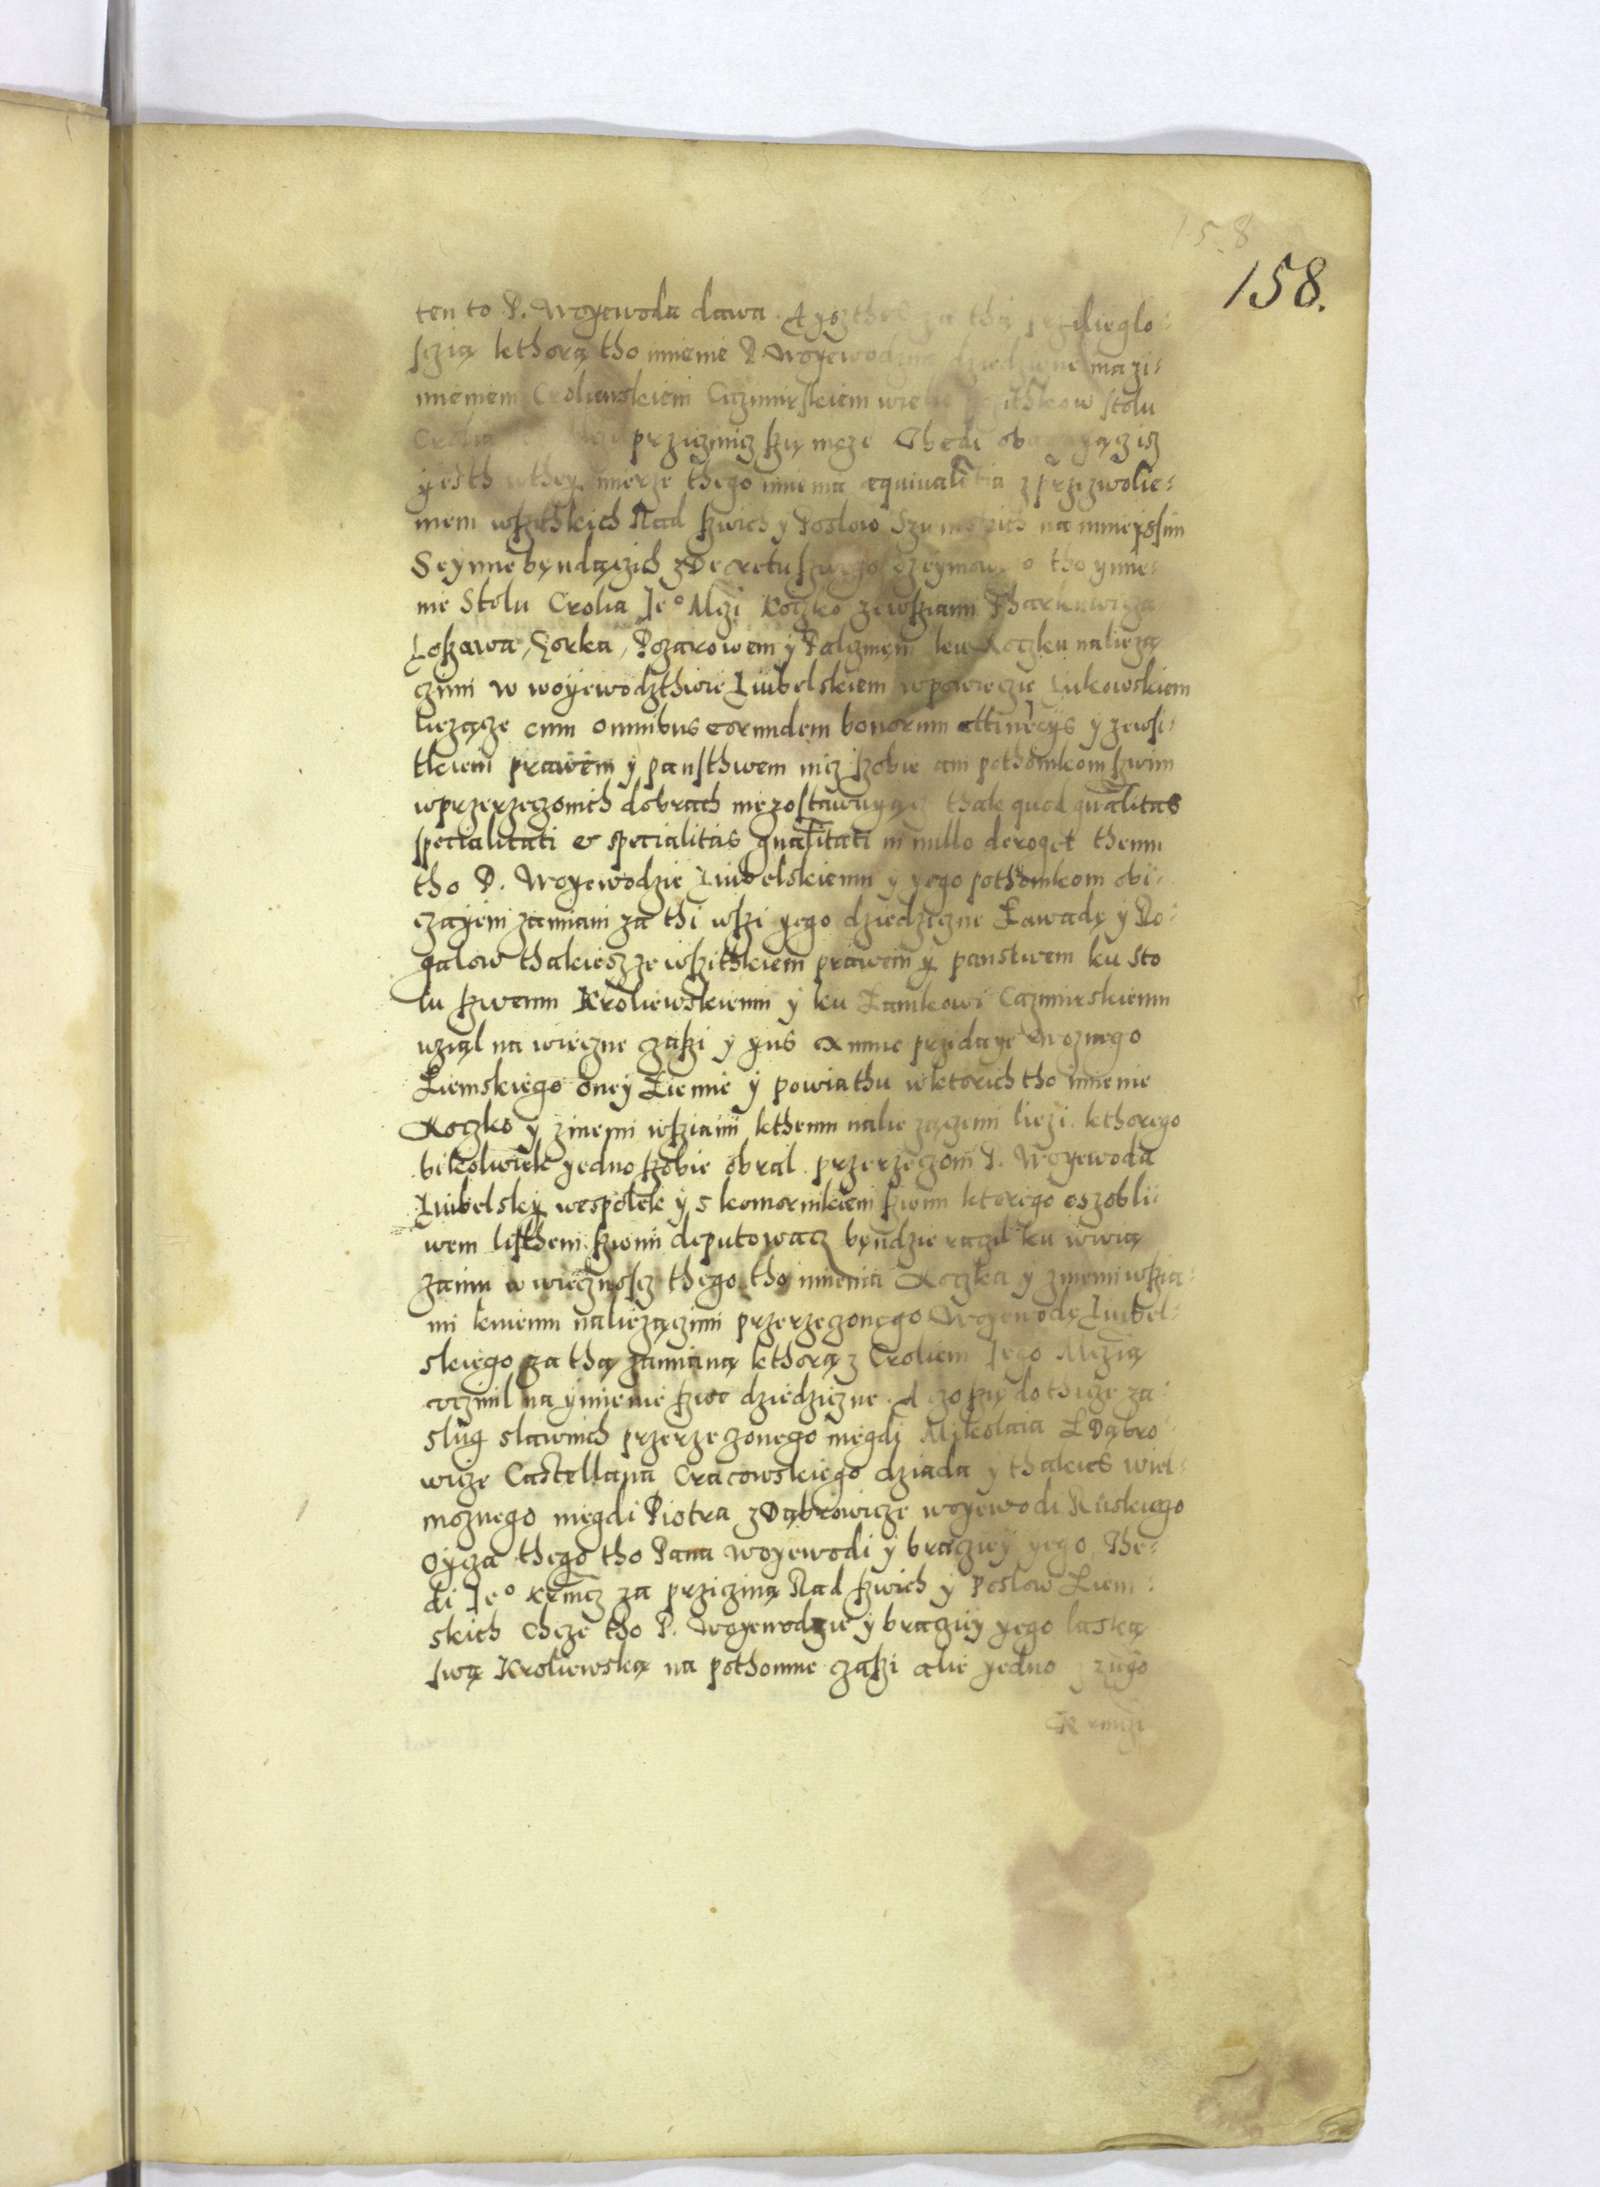 158
158.
ten to P. Woyewoda dawa. A za tha przilieglo-
sczią kthorą tho imienie P. Woyewodzine dziedziczne ma zi-
mieniem Croliewskiem Cazimirskiem wiele stolu
Crolia prziczinicz szię może Thedi
yesth wthey mierze thego imienia equivalentia z przizwolie-
niem wszithkich Rad szwich y Poslow na ninieissim
Seymie będączich z Decretu szwego Szeymowego tho ymie-
nie Stolu Crolia Je° Mczi Koczko zewsziami
Loszawa, Gorka, Pozarowem y ku Koczku nalieżą
czimi w woyewodzthwie Liubelskiem wpowieczie Lukowskiem
lieżącze cum omnibus eorundem bonorum attinecÿs y zewszi-
tkiem prawem y pansthwem nicz szobie ani pothomkom szwim
wprzerzeczonich dobrach niezostawuyącz thak quod qualitas
specialitati et specialitas qualitati in nullo deroget themu
tho P. Woyewodzie Liubelskiemu y yego pothomkom obi-
czayem zamiani za thi wszi yego dziedziczne Zawadę y Ro-
galow thakiesz ze wszithkiem prawem y panstwem ku sto
lu szwemu Kroliewskiemu y ku Zamkowi Cazimirskiemu
wziąl na wieczne czaszi y yus ex nunc przidaye woznego
Ziemskiego oney Ziemie y powiathu wktorich tho imienie
Koczko y zinemi wsziami kthemu nalieżączemi lieżi. kthorego
bikolwiek yedno szobie obral przerzeczoni P. Woyewoda
Liubelsky wespolek y s komornikiem szwim ktorego oszobli-
wem listhem szwim deputowacz będzie raczil ku wwią
zaniu w wiecznoscz thego tho imienia Koczka y zinemi wszia-
mi kniemu nalieżączimi przerzeczonego Woyewodę Liubel-
skiego za thą zamianą kthorą z Croliem Jego Mczią
uczinil na ymienie szwe dziedziczne. A czo szię dothicze za-
slug slawnich przerzeczonego niegdi Mikolaia Z Dąbro-
wicze Castellana Cracowskiego dziada y thakies wiel-
możnego niegdi Piotra z Dąbrowicze woyewodi Ruskiego
Oycza thego tho Pana Woyewodi y braciey yego. The-
di Je° Krmcz za przicziną Rad szwich y Poslow Ziem-
skich chcze tho P. Woyewodzie y braciey yego laską
swą Kroliewską na pothomne czaszi alie yedno
Krmczi